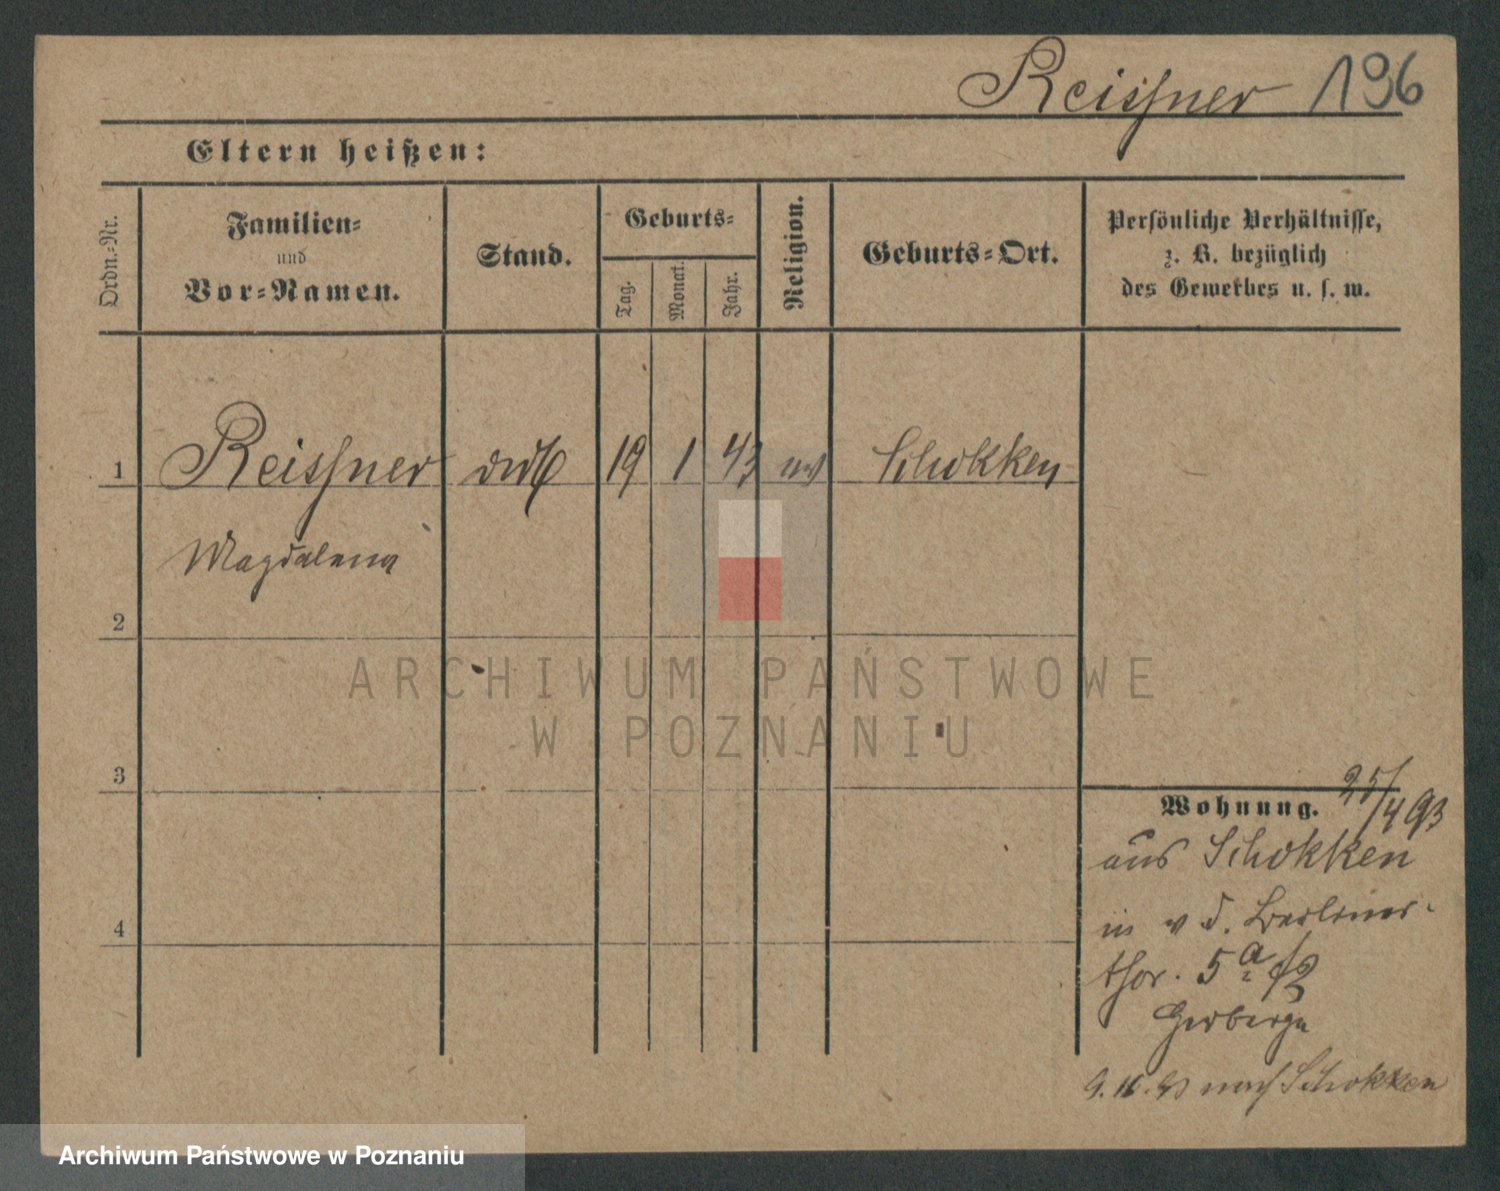 Reissner 196
Eltern heißen:
Ordn.-Nr.
Familien-
und
Vor-Namen.
Stand.
Geburts-
Tag.
Monat.
Jahr.
Religion.
Geburts-Ort.
Persönliche Verhältnisse,
z. B. bezüglich
des Gewerbes u. s. w.
1 Reissner 19 1 43 Schokken
Magdalena
2
3
4
Wohnung. 25/4 93
aus Schokken
in v d. Berliner-
thor. 5a
Herberge
nach Schokken
ARCHIWUM PAŃSTWOWE
W POZNANIU
Archiwum Państwowe w Poznaniu